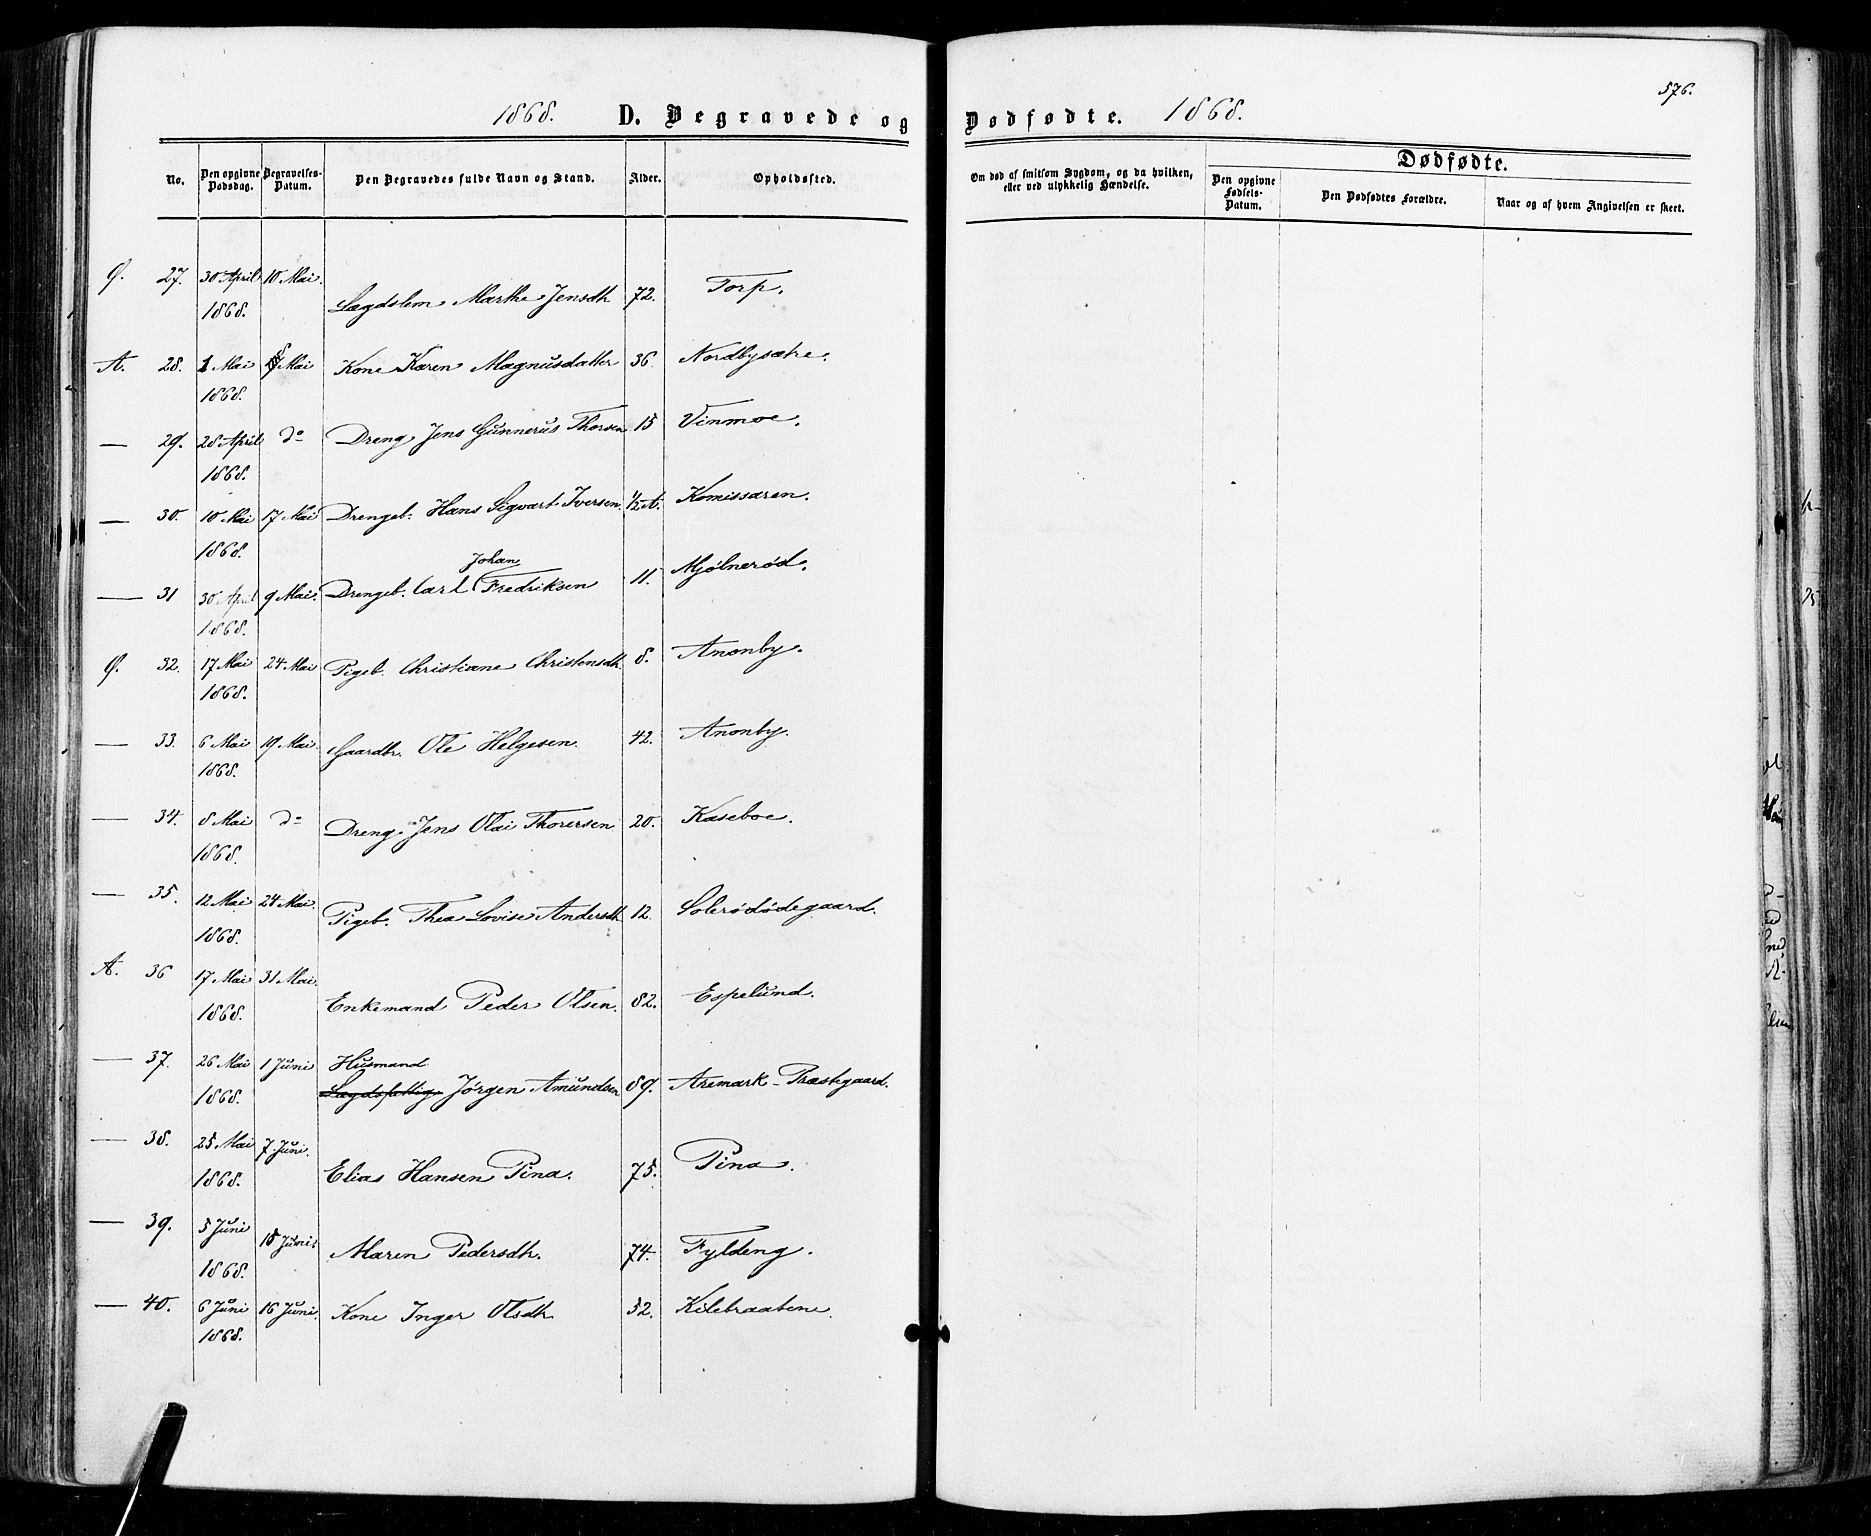 1868. D. Begravede og
Dødfødte. 1868.
576.
No.
Den opgivne Dødsdag.
Begravelses-Datum.
Den Begravedes fulde Navn og Stand.
Alder.
Opholdssted.
Om død af smitsom Sygdom, og da hvilken,
eller ved ulykkelig Hændelse.
Dødfødte.
Den opgivne Fødsels-Datum.
Den Dødfødtes Forældre.
Naar og af hvem Angivelsen er skeet.
Ø. 27. 30 April 10 Mai.
1868. Lægdslem Marthe Jensdtr 72. Torp.
A. 28. 1 Mai 8 Mai Kone Karen Magnusdatter 36. Nordbysætre.
1868.
— 29. 28 April do Dreng Jens Gunnerus Thorsen 15 Vinmoe.
1868.
— 30. 10 Mai 17 Mai Drengeb. Hans Sigvart Iversen. ½ A. Komissaren.
1868.
Johan
— 31 30 April 9 Mai. Drengeb. Carl Fredriksen 11. Mjölnerød.
1868.
Ø. 32. 17 Mai 24 Mai Pigeb. Christiane Christensdtr. 8. Anonby.
1868.
— 33. 6 Mai 19 Mai Gaardbr. Ole Helgesen. 42. Anonby.
1868.
— 34. 8 Mai do Dreng Jens Olai Thorersen 20. Kaseboe.
1868.
— 35. 12 Mai 24 Mai. Pigeb. Thea Lovise Andersdtr. 12. Solerødødegaard.
1868.
A. 36 17 Mai 31 Mai. Enkemand Peder Olsen. 82. Espelund.
1868.
— 37. 26 Mai 1 Juni Husmand
1868. Lægdsfattige Jörgen Amundsen 89. Aremark-Præstegaard.
— 38. 25 Mai 7 Juni.
1868. Elias Hansen Pina. 75. Pina.
— 39. 5 Juni 15 Juni.
1868. Maren Pedersdtr. 74. Fyldeng.
— 40. 6 Juni 16 Juni. Kone Inger Olsdtr. 52. Kilebraatene.
1868.